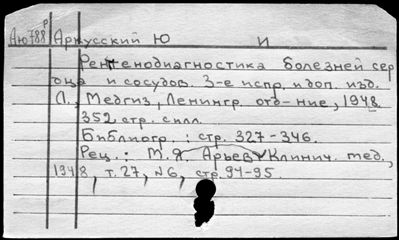 Аю788 Р Аркусский Ю И
Рентгенодиагностика болезней сер
дца и сосудов. 3-е испр. и доп. изд.
Л., Медгиз, Ленингр. отд-ние, 1948.
352 стр. с илл.
Библиогр.: стр. 327-346.
Рец.: М. Я. Арьев, Клинич. мед.,
1948, т. 27, №6, стр. 94-95.